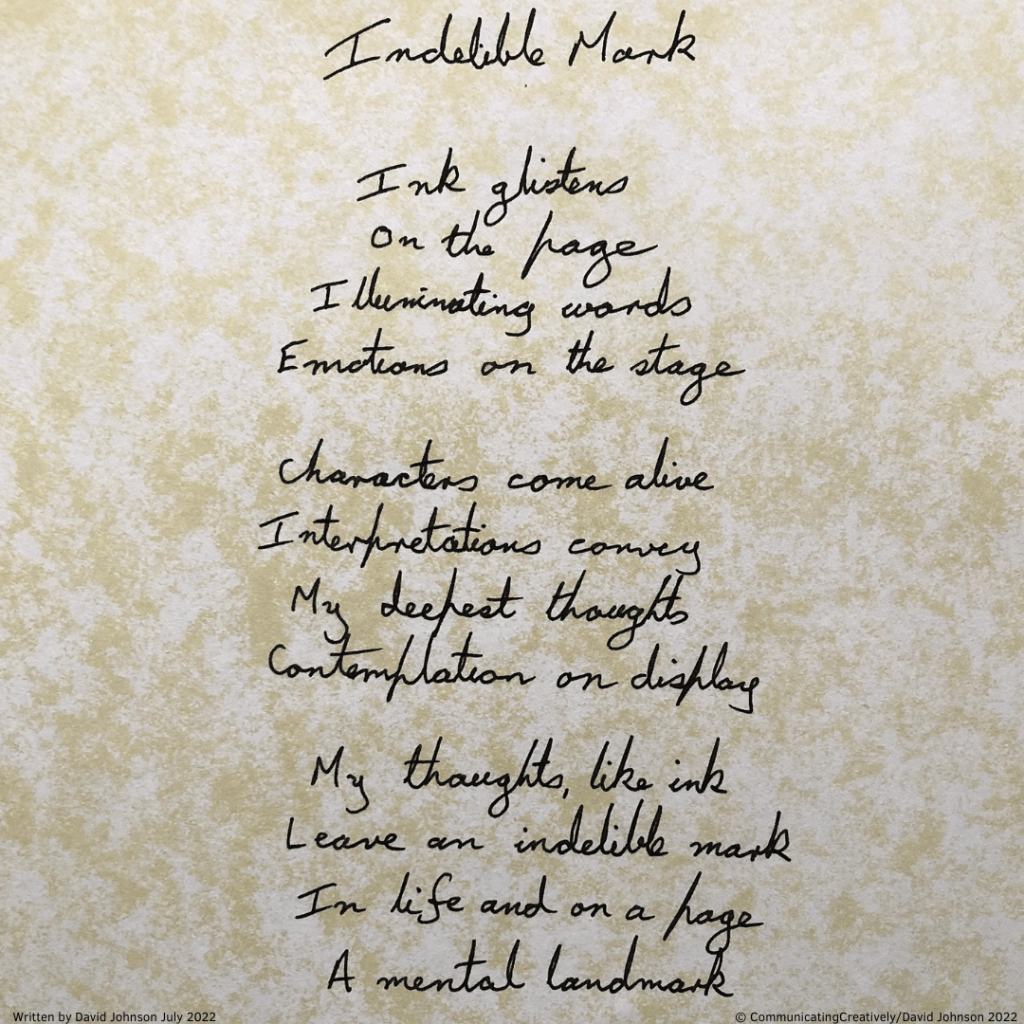 Indelible Mark
Ink glistens
On the page
Illuminating words
Emotions on the stage
Characters come alive
Interpretations convey
My deepest thoughts
Contemplation on display
My thoughts, like ink
Leave an indelible mark
In life and on a page
A mental landmark
Written by David Johnson July 2022
© CommunicatingCreatively/David Johnson 2022